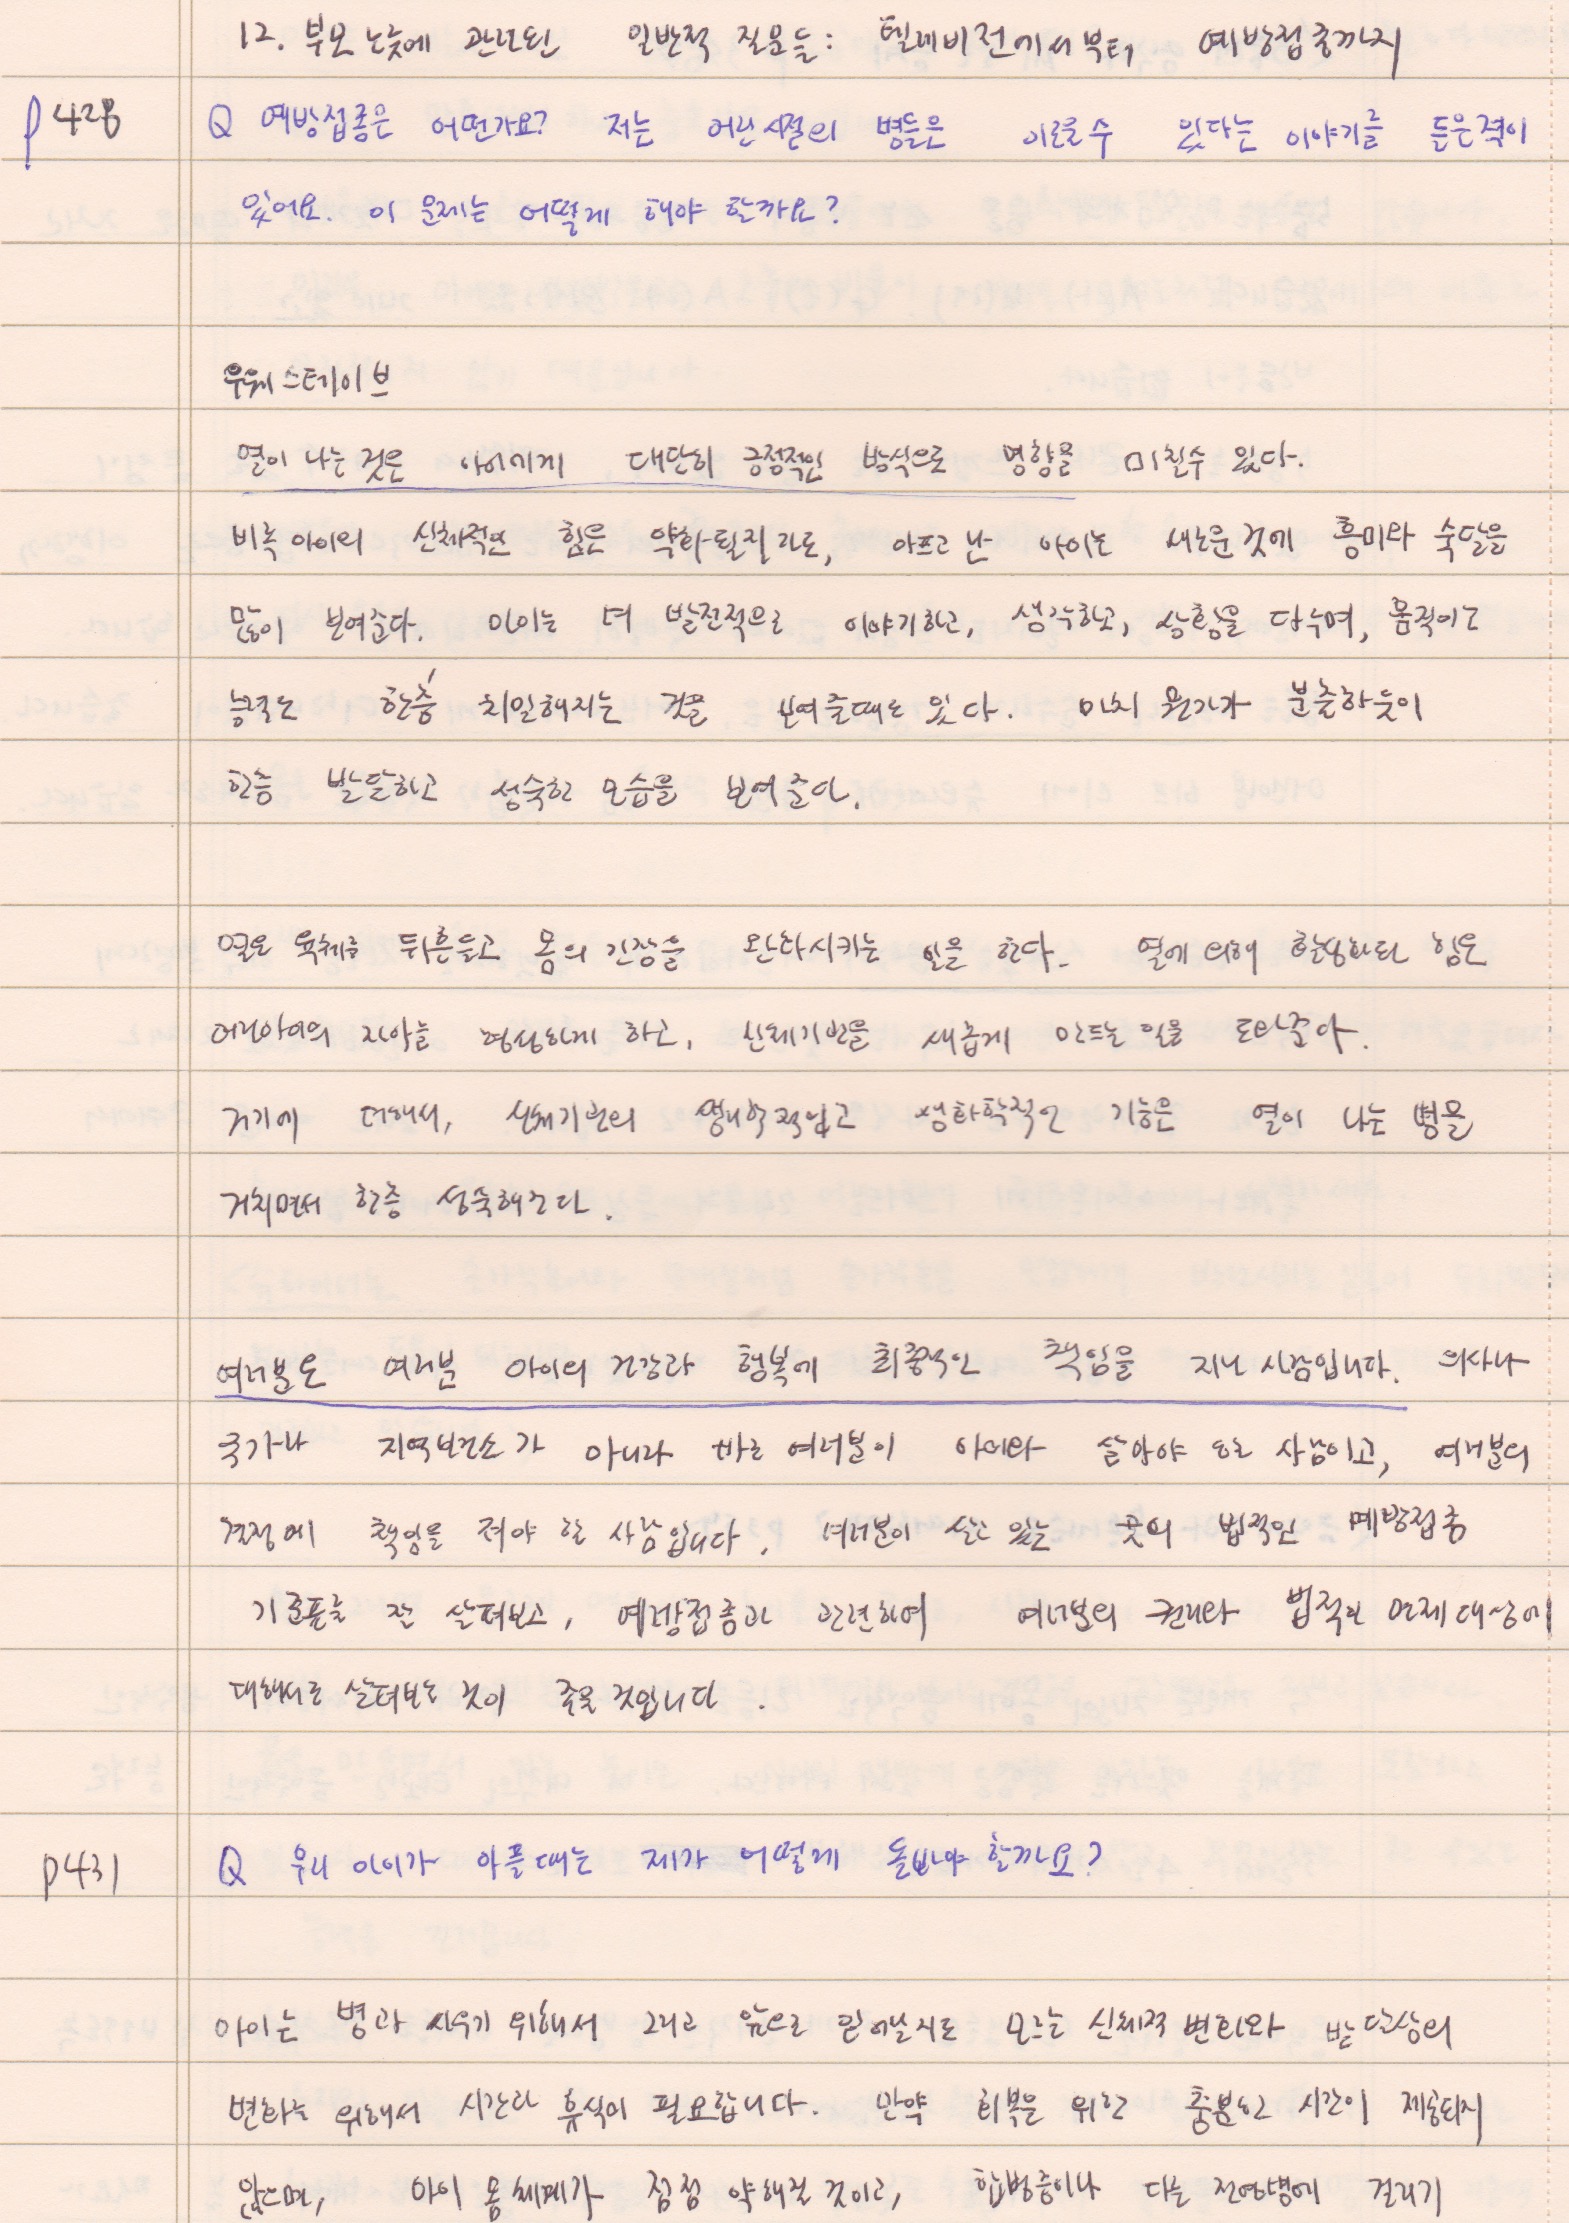 12. 부모 노릇에 관련된 일반적 질문들: 텔레비전에서부터 예방접종까지
p428 Q 예방접종은 어떤가요? 저는 어린시절의 병들은 이로울수 있다는 이야기를 들은적이
있어요. 이 문제는 어떻게 해야 할까요?
우웨 스테이브
열이 나는 것은 아이에게 대단히 긍정적인 방식으로 영향을 미칠수 있다.
비록 아이의 신체적인 힘은 약화될지라도, 아프고 난 아이는 새로운 것에 흥미와 숙달을
많이 보여준다. 아이는 더 발전적으로 이야기하고, 생각하고, 상황을 다루며, 움직이는
능력은 한층 치밀해지는 것을 보여줄때도 있다. 마치 뭔가가 분출하듯이
한층 발달하고 성숙한 모습을 보여준다.
열은 육체를 뒤흔들고 몸의 긴장을 완화시키는 일을 한다. 열에 의해 활성화된 힘은
어린아이의 자아를 형성하게 하고, 신체기관을 새롭게 만드는 일을 도와준다.
거기에 더해서, 신체기관의 생화학적인 기능은 열이 나는 병을
거치면서 한층 성숙해진다.
여러분은 여러분 아이의 건강과 행복에 최종적인 책임을 지닌 사람입니다. 의사나
국가나 지역보건소가 아니라 바로 여러분이 아이와 살아야 할 사람이고, 여러분의
결정에 책임을 져야 할 사람입니다. 여러분이 살고 있는 곳의 법적인 예방접종
기준표를 잘 살펴보고, 예방접종과 관련하여 여러분의 권리와 법적인 면제대상에
대해서도 살펴보는 것이 좋을 것입니다.
p431 Q 우리 아이가 아플때는 제가 어떻게 돌봐야 할까요?
아이는 병과 싸우기 위해서 그리고 앞으로 일어날지도 모르는 신체적 변화와 발달상의
변화를 위해서 시간과 휴식이 필요합니다. 만약 회복을 위한 충분한 시간이 제공되지
않으면, 아이 몸 체계가 점점 약해질 것이고, 합병증이나 다른 전염병에 걸리기